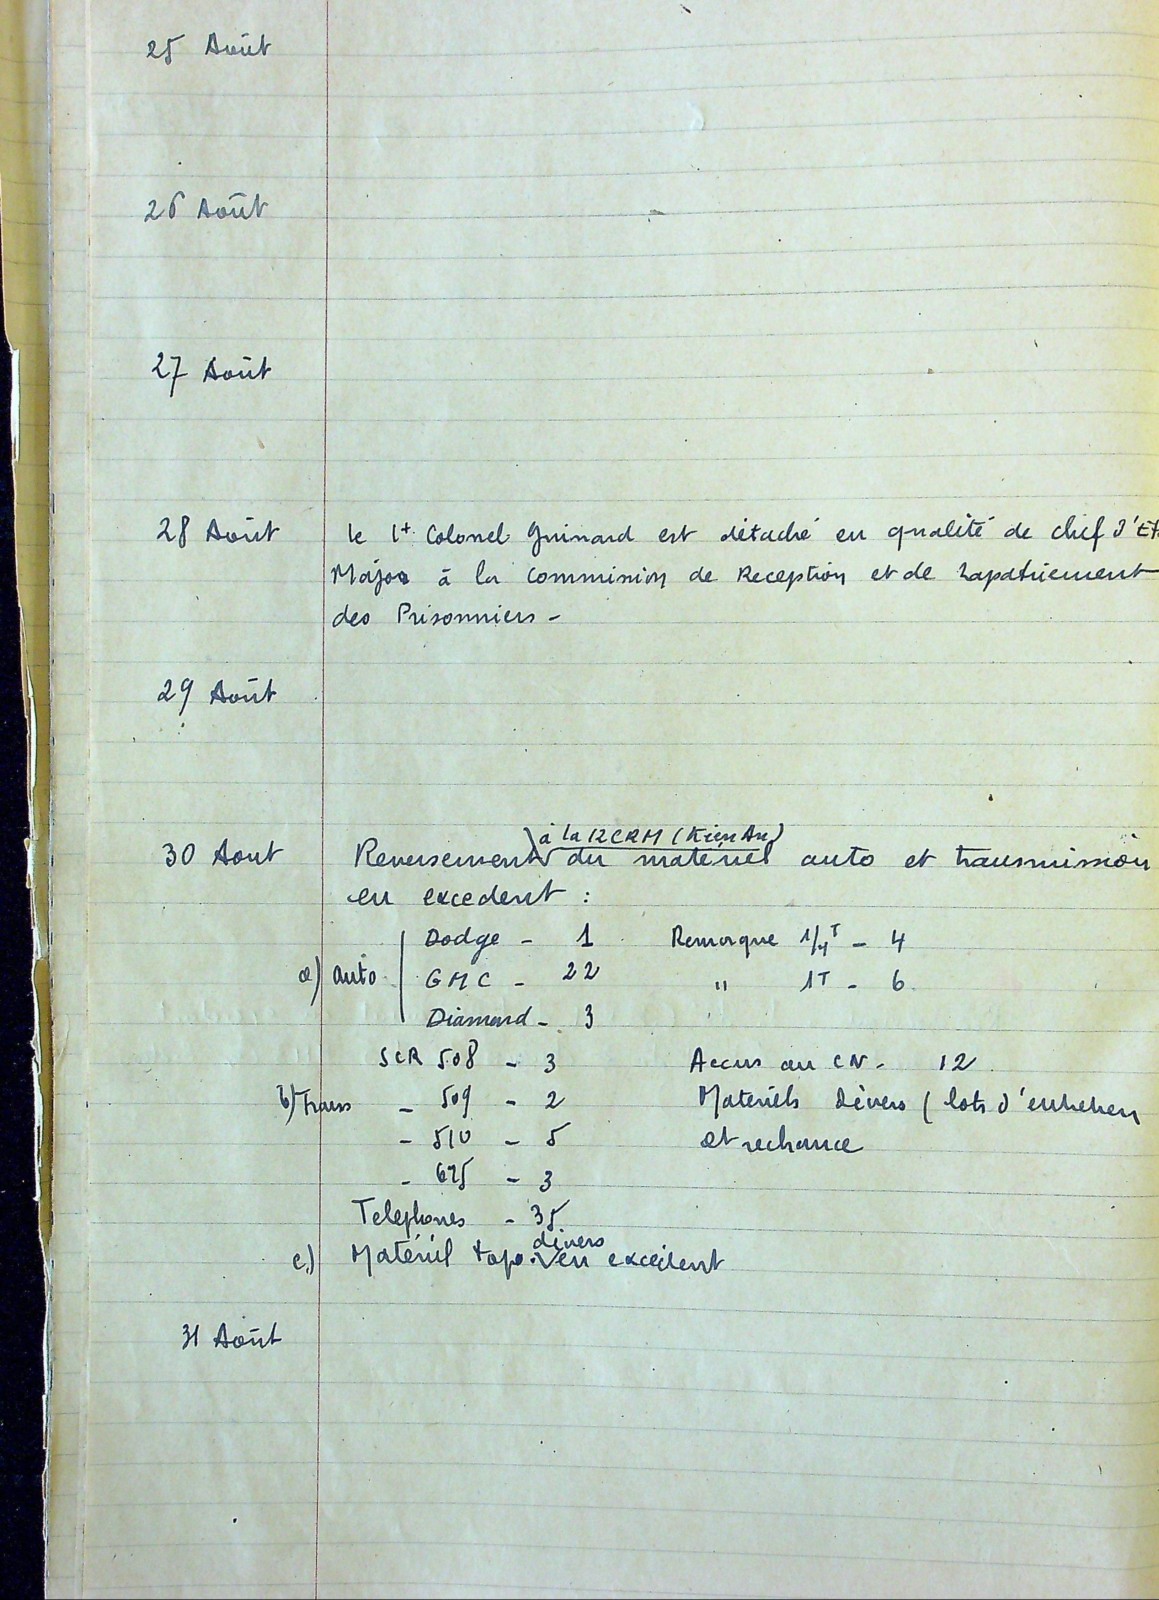 25 Août
26 Août
27 Août
28 Août le Lt Colonel Guinard est détaché en qualité de chef d'Et
Major à la Commission de Reception et de rapatriement
des Prisonniers -
29 Août
à la 12 CRM (Kien An)
30 Aout Reversement du matériel auto et transmission
en excedent :
Dodge - 1 Remorque 1/4 T - 4
a) auto GMC - 22 " 1T - 6
Diamond - 3
SCR 508 - 3 Accus au CN - 12
b) Trans - 509 - 2 Materiels divers (lots d'entretien
- 510 - 5 et rechance
- 625 - 3
Telephones - 35
divers
c) Matériel topo. en excedent
31 Août